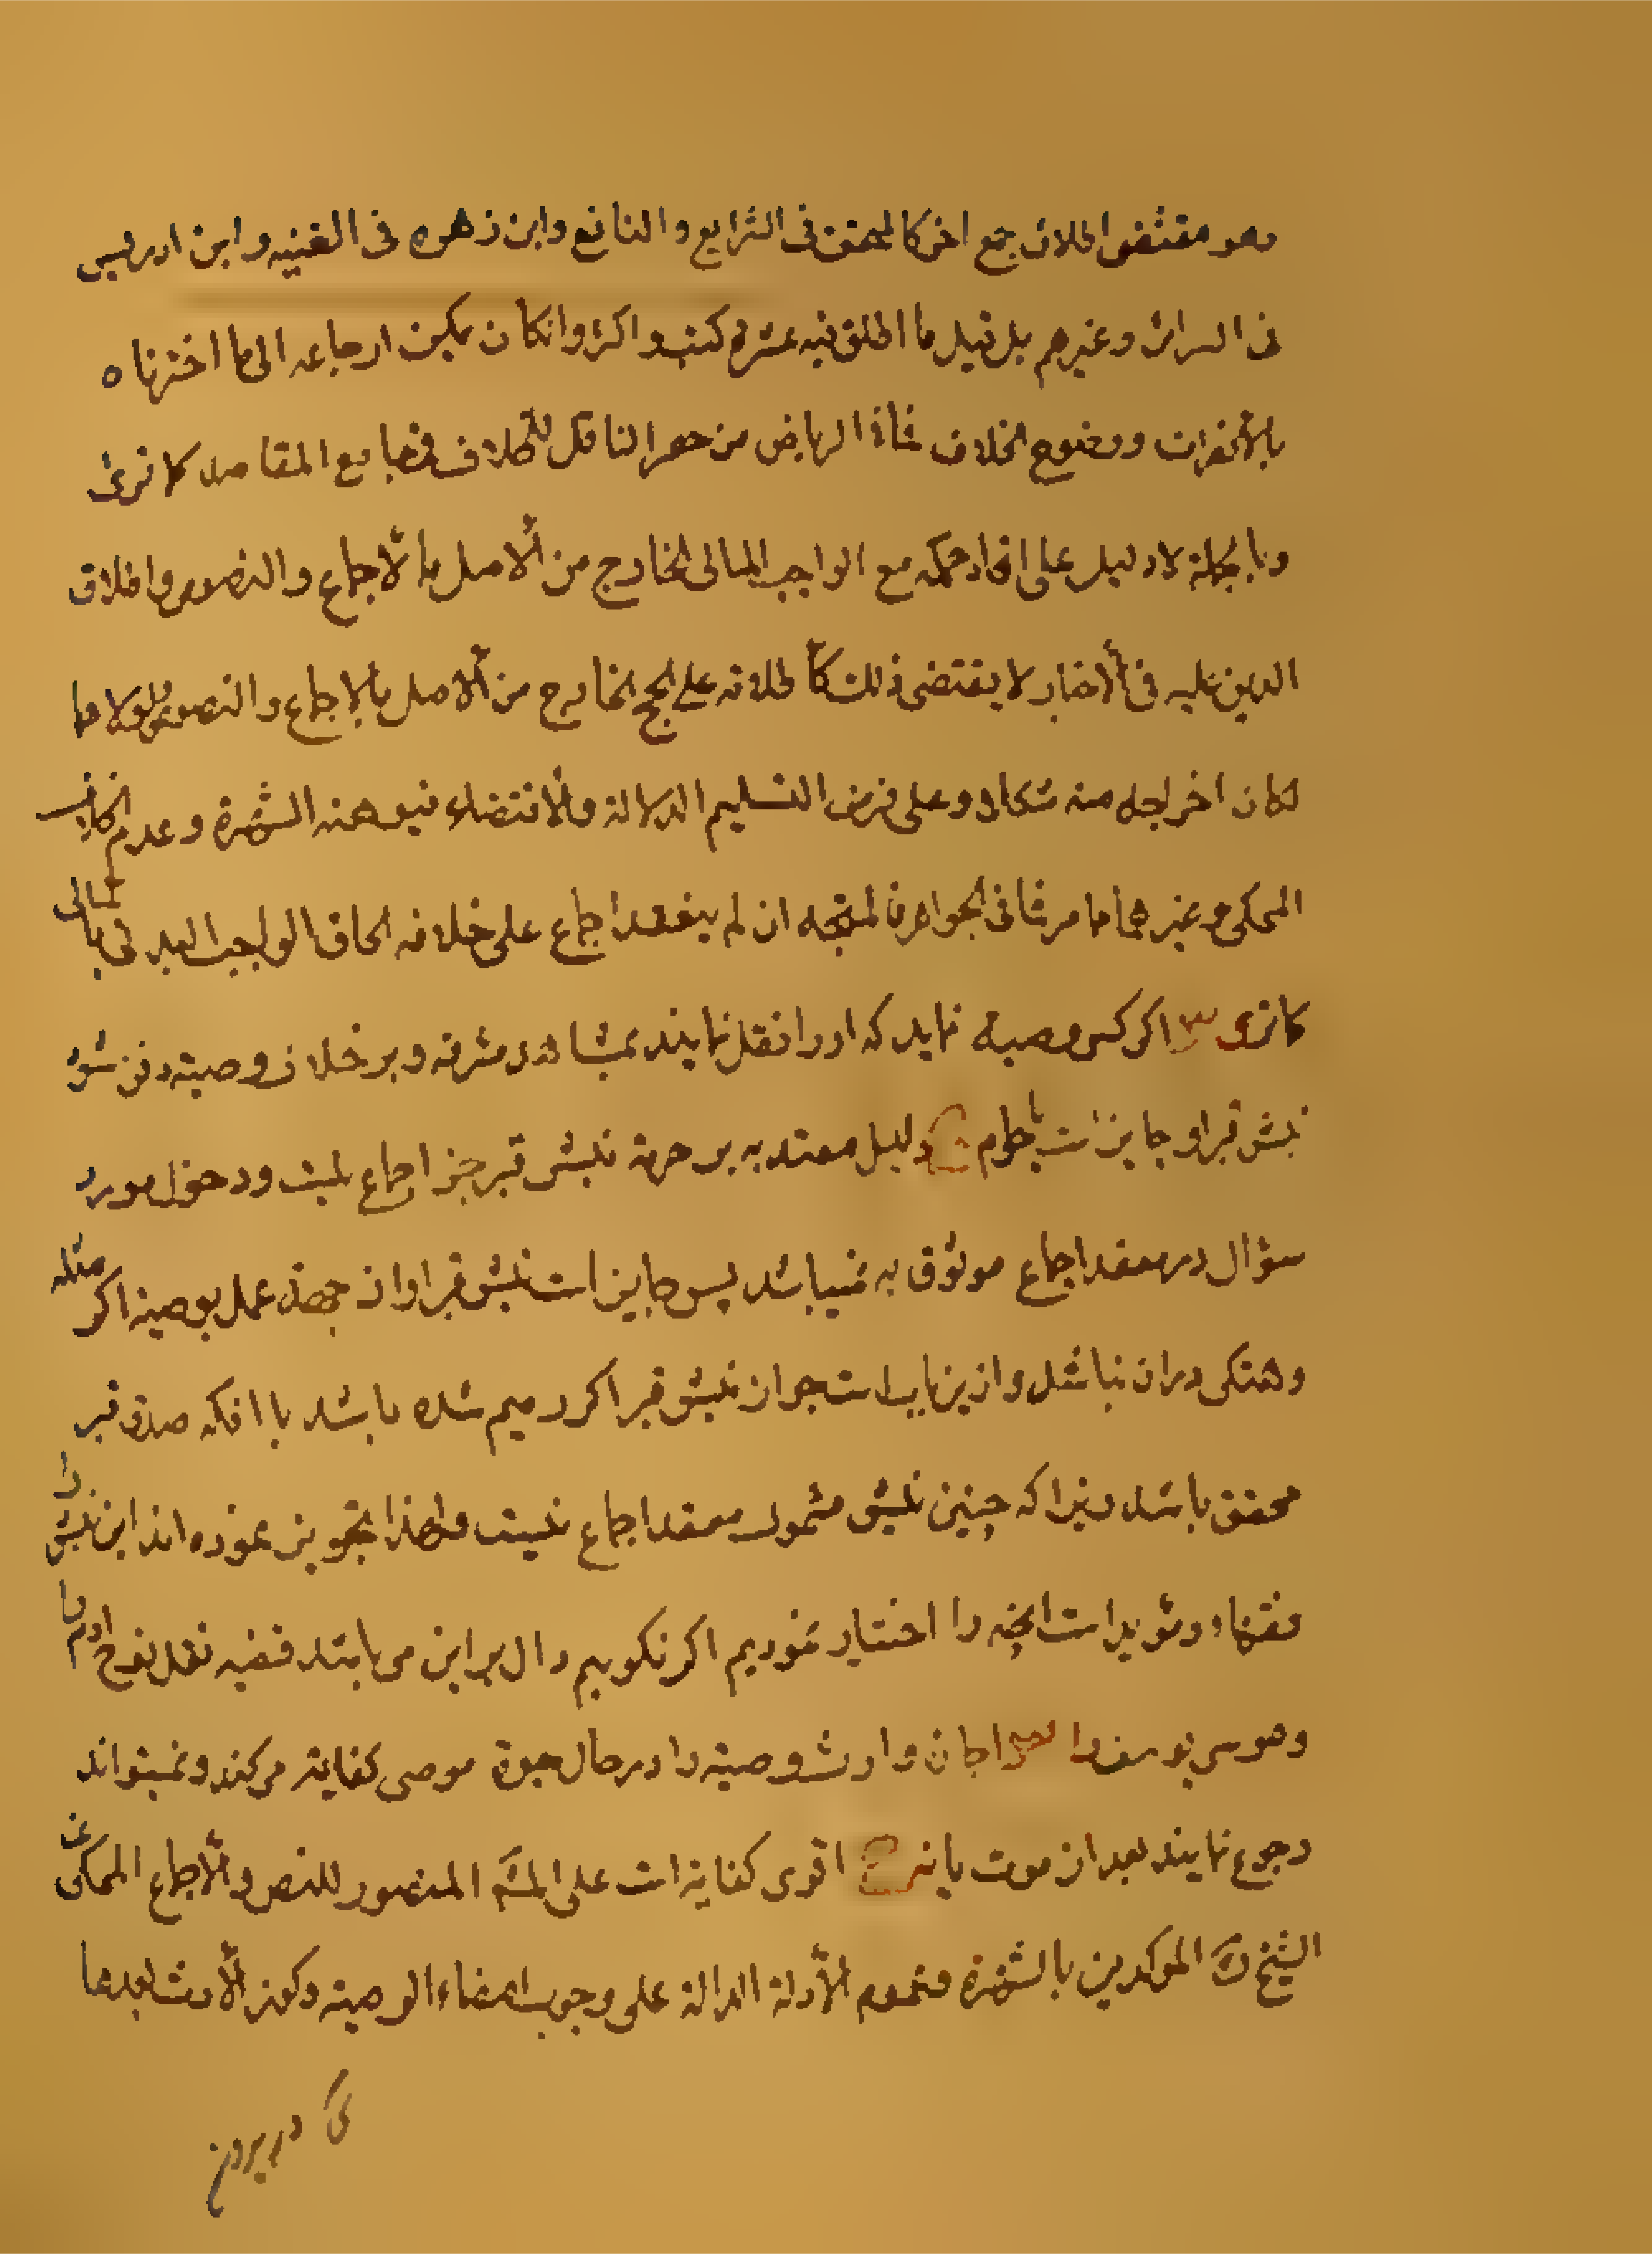 وهو مقتضى اطلاق جمع اخر كالمحقق فى الشرايع و النافع وابن زهره فى الغنيه و ابن ادريس
فى السرائر و غيرهم بل قيل ما اطلق فيه عشره كتب و اكثر وانكان يمكن ارجاعه الى ما اخترناه
بالأخرة ووضوح الخلاف فما فى الرياض من حصر الناقل للخلاف فى جامع المقاصد كما ترى
وبالجملة لا دليل على اتحاد حكمه مع الواجب المالى الخارج من الأصل بالأجماع والنصوص واطلاق
الدين عليه فى الأخبار لا يقتضى ذلك كأطلاقه على الحج الخارج من الأصل بالإجماع و النصوص ولولاهما
لكان اخراجه منه مشكلا و على فرض التسليم الدلالة والأقتضاء فيوهنه الشهرة و عدم الخلاف
المحكى و غيرهما مما مر فما فى الجواهر فالمتجه ان لم ينعقد اجماع على خلافه الحاق الواجب البدنى بالمالى
كما ترى س اكر كسى وصية نمايد كه او را نقل نمايند بمشاهد مشرفه و بر خلاف وصيته دفن شود
نبش قبر او جايز است يا حرام ج دليل معتد به بر حرمة نبش قبر جز اجماع نيست و دخول مورد
سؤال در معقد اجماع موثوق به نميباشد پس جايز است نبش قبر او از جهة عمل بوصية اكر مثله
و هتكى در ان نباشد و از ين باب است جواز نبش قبر اكر رميم شده باشد با انكه صدق قبر
محقق باشد زيرا كه چنين نبش مشمول معقد اجماع نيست و لهذا تجويز نموده اند اين نبش را
فقهاء و مؤيد است انچه را اختيار نموديم اكر نكوييم دال بر اين مى باشد قضيه نقل نوح ادم را
و موسى يوسف را س اجازه وارث وصيته را در حال حيوة موصى كفاية مى كند و نميتواند
رجوع نمايند بعد از موت يا نه ج اقوى كفاية است على المشهور المنصور للنص و الأجماع المحكى عن
الشيخ المؤكدين بالشهرة و عموم الأدلة الدالة على وجوب امضاء الوصية و كون الأرث بعدها